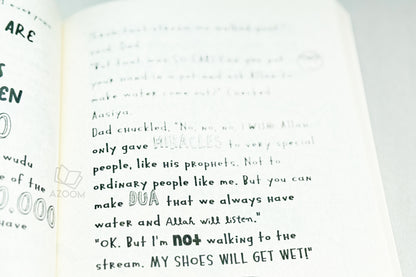 ARE
S
EN
0
wudu
e of the
0.000
have
AZOOM
said Dad.
"But that was SO EASY! Can you put
your hand in a pot and ask Allah to
make water come out?" chuckled
Aasiya.
Dad chuckled, "No, no, no, I wish! Allah
only gave MIRACLES to very special
people, like His prophets. Not to
ordinary people like me. But you can
make DUA that we always have
water and Allah will listen."
"OK. But I'm not walking to the
stream. MY SHOES WILL GET WET!"